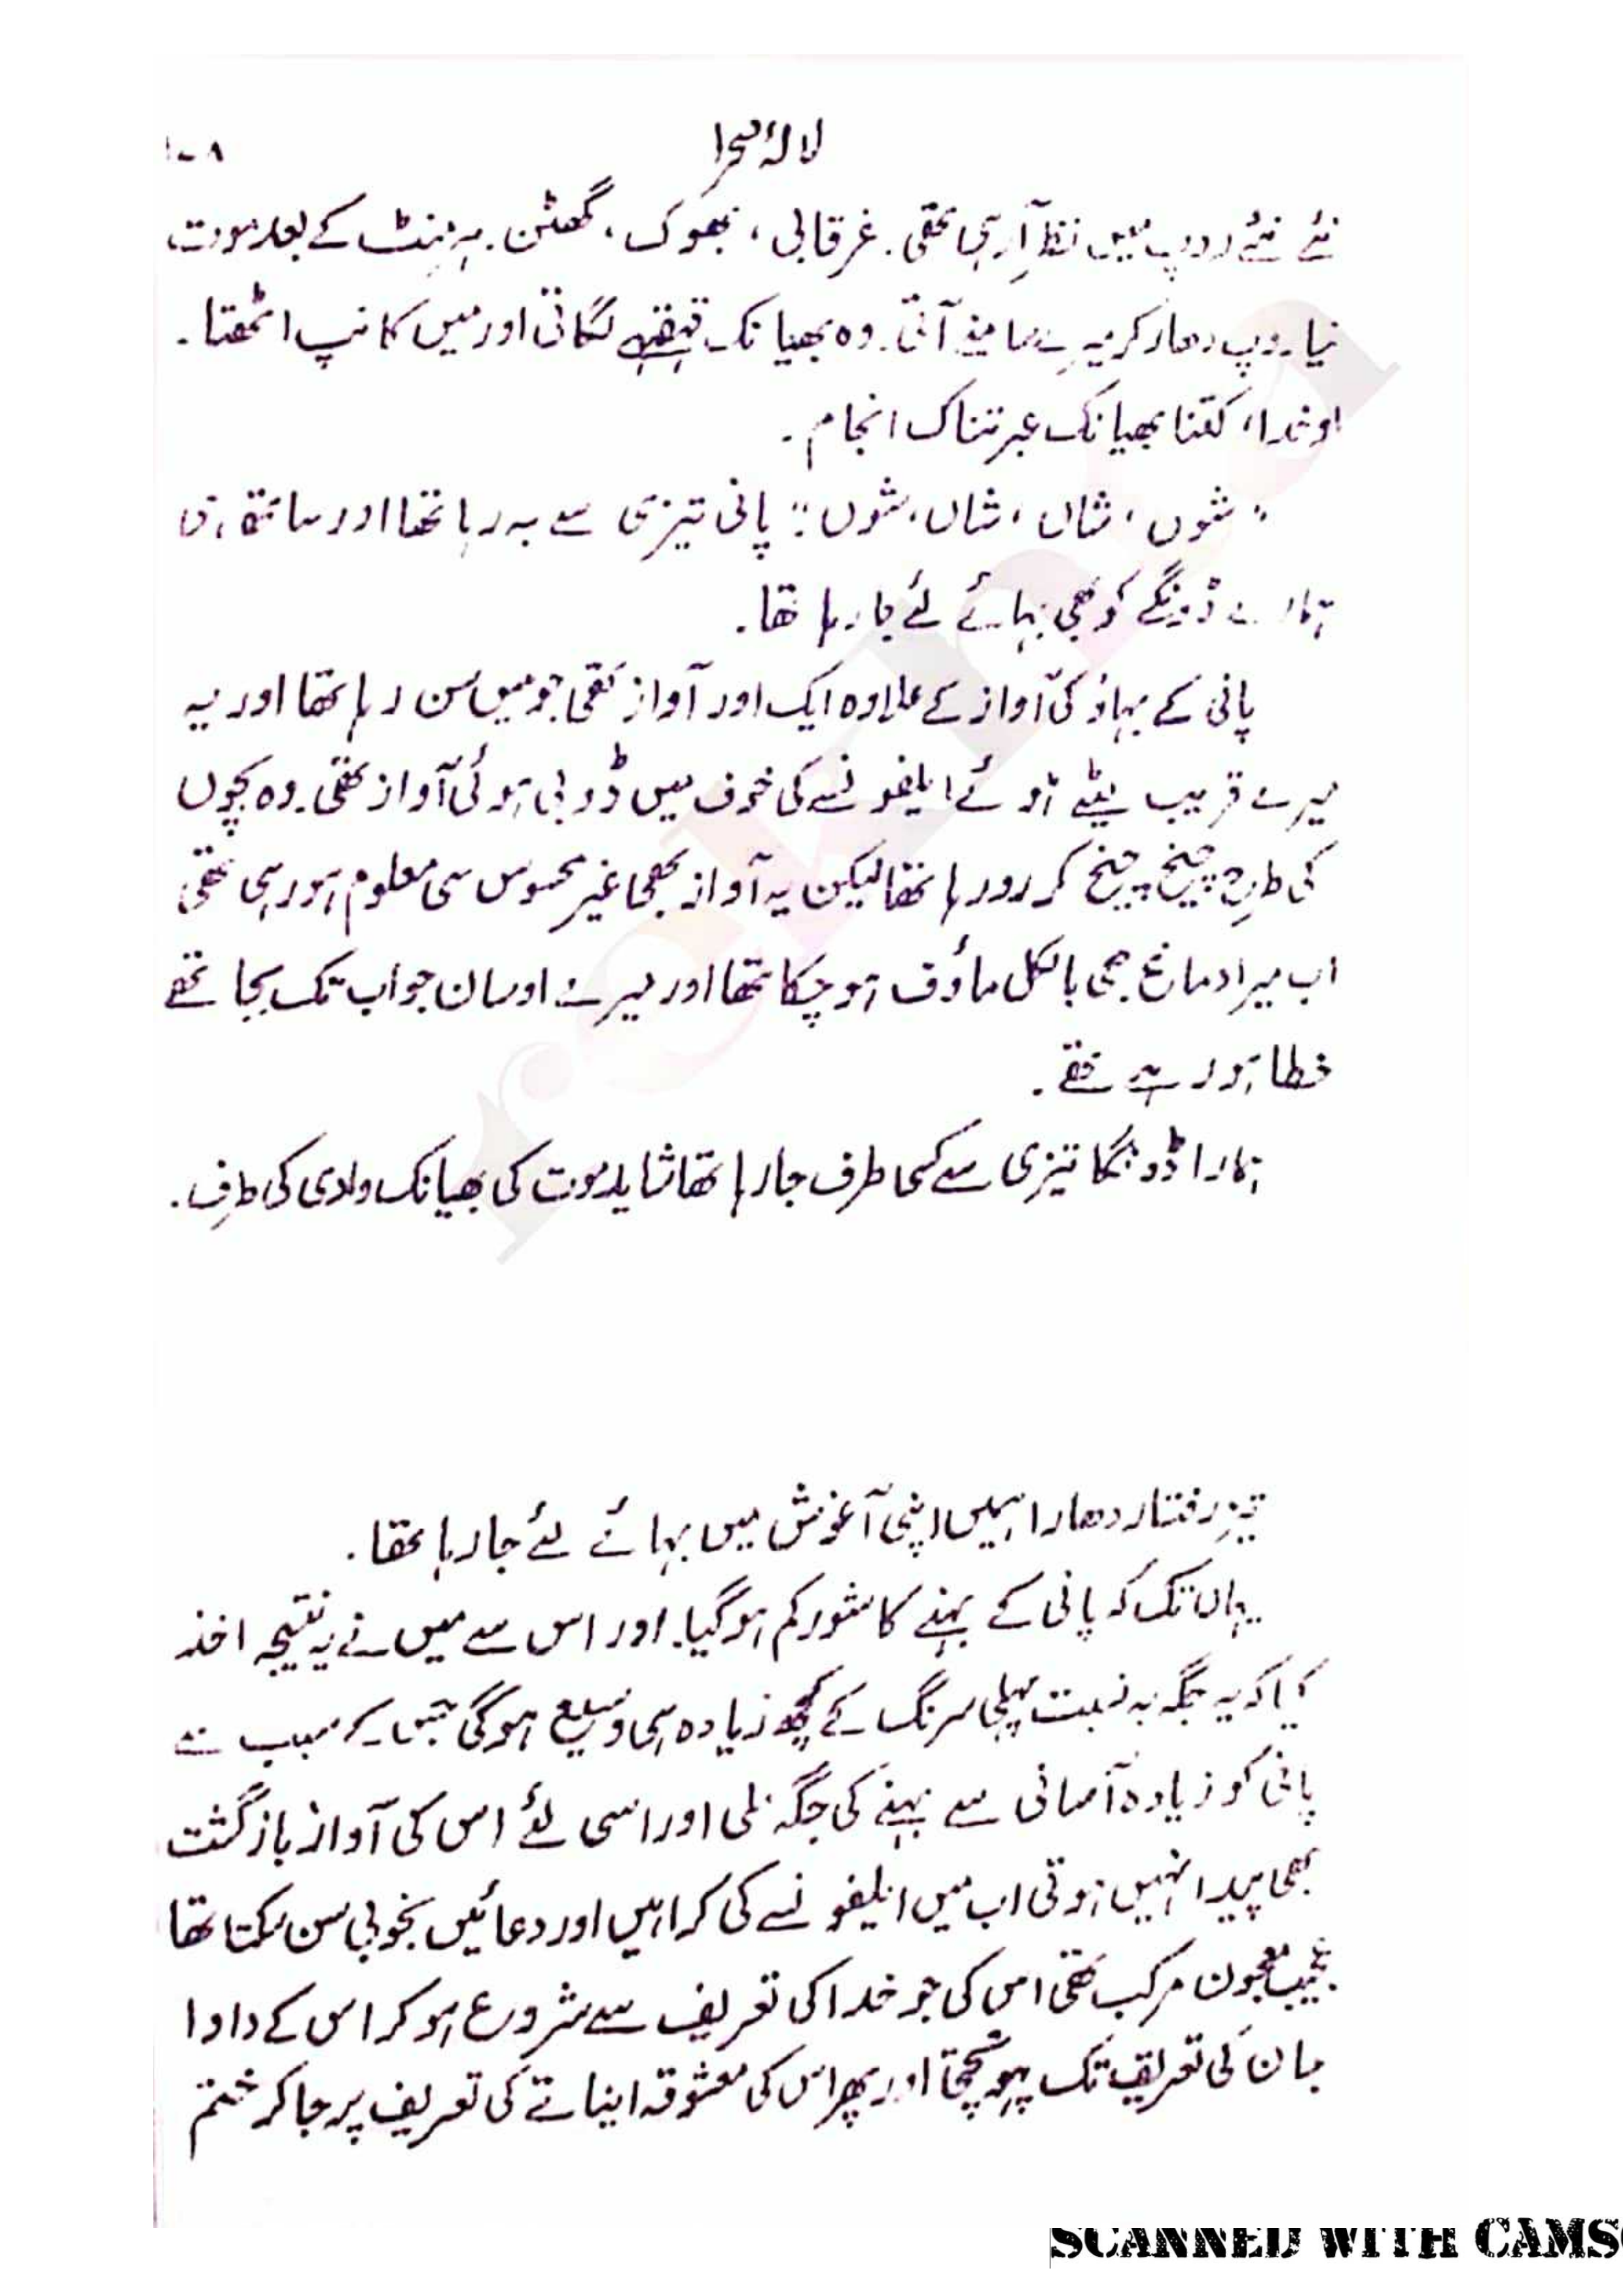 لالۂ صحرا
۱۰۸
نئے نئے روپ میں نظر آرہی تھی۔ غرقابی، بھوک، گھٹن۔ ہر منٹ کے بعد موت
نیا روپ دھار کر میرے سامنے آتی۔ وہ بھیانک قہقہے لگاتی اور میں کانپ اٹھتا۔
او خدا، کتنا بھیانک عبرتناک انجام۔
"شوں، شاں، شاں، شوں" پانی تیزی سے بہ رہا تھا اور ساتھ ہی
ہمارے ڈونگے کو بھی بہائے لئے جا رہا تھا۔
پانی کے بہاؤ کی آواز کے علاوہ ایک اور آواز تھی جو میں سن رہا تھا اور یہ
میرے قریب بیٹھے ہوئے ایلفونسے کی خوف میں ڈوبی ہوئی آواز تھی۔ وہ بچوں
کی طرح چیخ چیخ کر رو رہا تھا لیکن یہ آواز بھی غیر محسوس سی معلوم ہو رہی تھی
اب میرا دماغ بھی بالکل ماؤف ہو چکا تھا اور میرے اوسان جو اب تک بجا تھے
خطا ہو رہے تھے۔
ہمارا ڈونگا تیزی سے کسی طرف جا رہا تھا شاید موت کی بھیانک وادی کی طرف۔
تیز رفتار دھارا ہمیں اپنی آغوش میں بہائے لئے جا رہا تھا۔
یہاں تک کہ پانی کے بہنے کا شور کم ہو گیا۔ اور اس سے میں نے یہ نتیجہ اخذ
کیا کہ یہ جگہ بہ نسبت پہلی سرنگ کے کچھ زیادہ ہی وسیع ہو گی جس کے سبب سے
پانی کو زیادہ آسانی سے بہنے کی جگہ ملی اور اسی لئے اس کی آواز بازگشت
بھی پیدا نہیں ہوتی اب میں ایلفونسے کی کراہیں اور دعائیں بخوبی سن سکتا تھا
عجیب معجون مرکب تھی اس کی جو خدا کی تعریف سے شروع ہو کر اس کے دادا
جان کی تعریف تک پہونچتی اور پھر اس کی معشوقہ اینا تے کی تعریف پر جا کر ختم
rekhta
SCANNED WITH CAMS